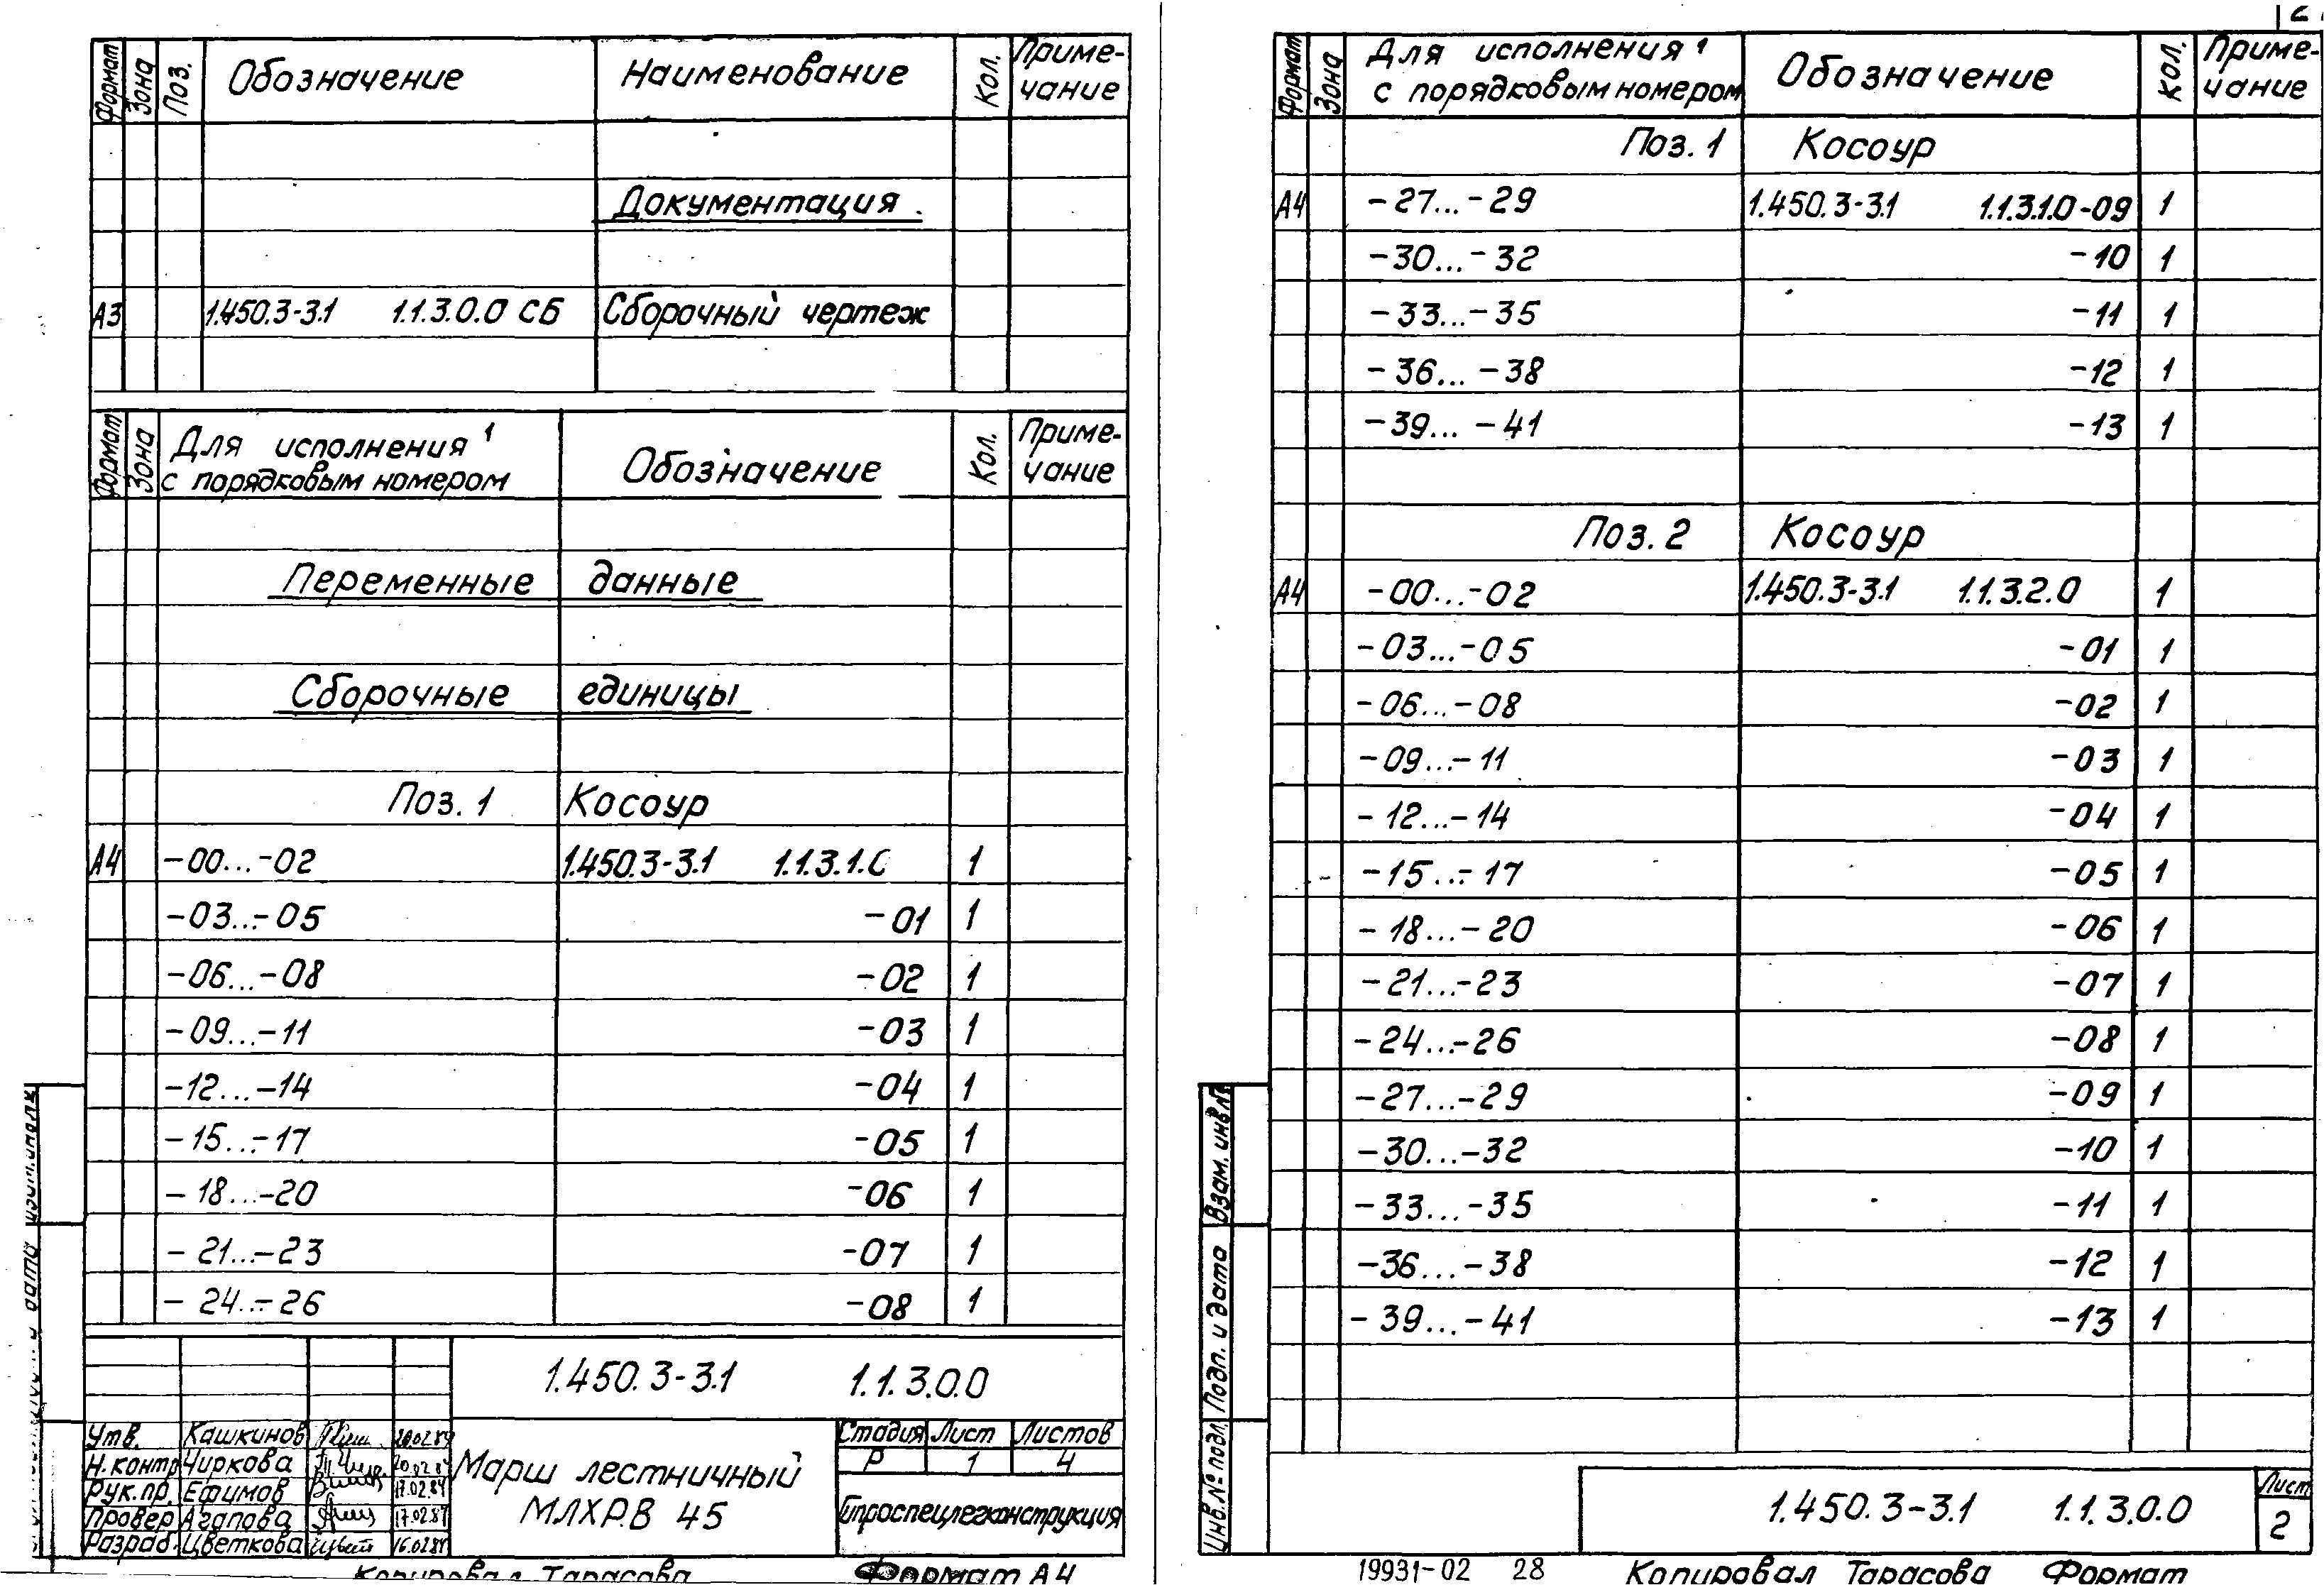 Формат Зона Поз. Обозначение Наименование Кол. Приме-
чание
Документация
А3 1.450.3-3.1 1.1.3.0.0 СБ Сборочный чертеж
Формат Зона Для исполнения¹ Обозначение Кол. Приме-
с порядковым номером чание
Переменные данные
Сборочные единицы
Поз. 1 Косоур
А4 -00...-02 1.450.3-3.1 1.1.3.1.0 1
-03...-05 -01 1
-06...-08 -02 1
-09...-11 -03 1
-12...-14 -04 1
-15...-17 -05 1
-18...-20 -06 1
-21...-23 -07 1
-24...-26 -08 1
1.450.3-3.1 1.1.3.0.0
Утв. Кашкинов 20.02.84
Н.контр Чиркова 20.02.84
Рук.пр. Ефимов 17.02.84
Провер Агапова 17.02.84
Разраб. Цветкова 16.02.84
Марш лестничный
МЛХР.В 45
Стадия Лист Листов
Р 1 4
Гипроспецлегконструкция
Копировал Тарасова Формат А4
Формат Зона Для исполнения¹ Обозначение Кол. Приме-
с порядковым номером чание
Поз. 1 Косоур
А4 -27...-29 1.450.3-3.1 1.1.3.1.0-09 1
-30...-32 -10 1
-33...-35 -11 1
-36...-38 -12 1
-39...-41 -13 1
Поз. 2 Косоур
А4 -00...-02 1.450.3-3.1 1.1.3.2.0 1
-03...-05 -01 1
-06...-08 -02 1
-09...-11 -03 1
-12...-14 -04 1
-15...-17 -05 1
-18...-20 -06 1
-21...-23 -07 1
-24...-26 -08 1
-27...-29 -09 1
-30...-32 -10 1
-33...-35 -11 1
-36...-38 -12 1
-39...-41 -13 1
Инв.№подл. Подп. и дата Взам.инв.№
1.450.3-3.1 1.1.3.0.0
Лист
2
19931-02 28 Копировал Тарасова Формат